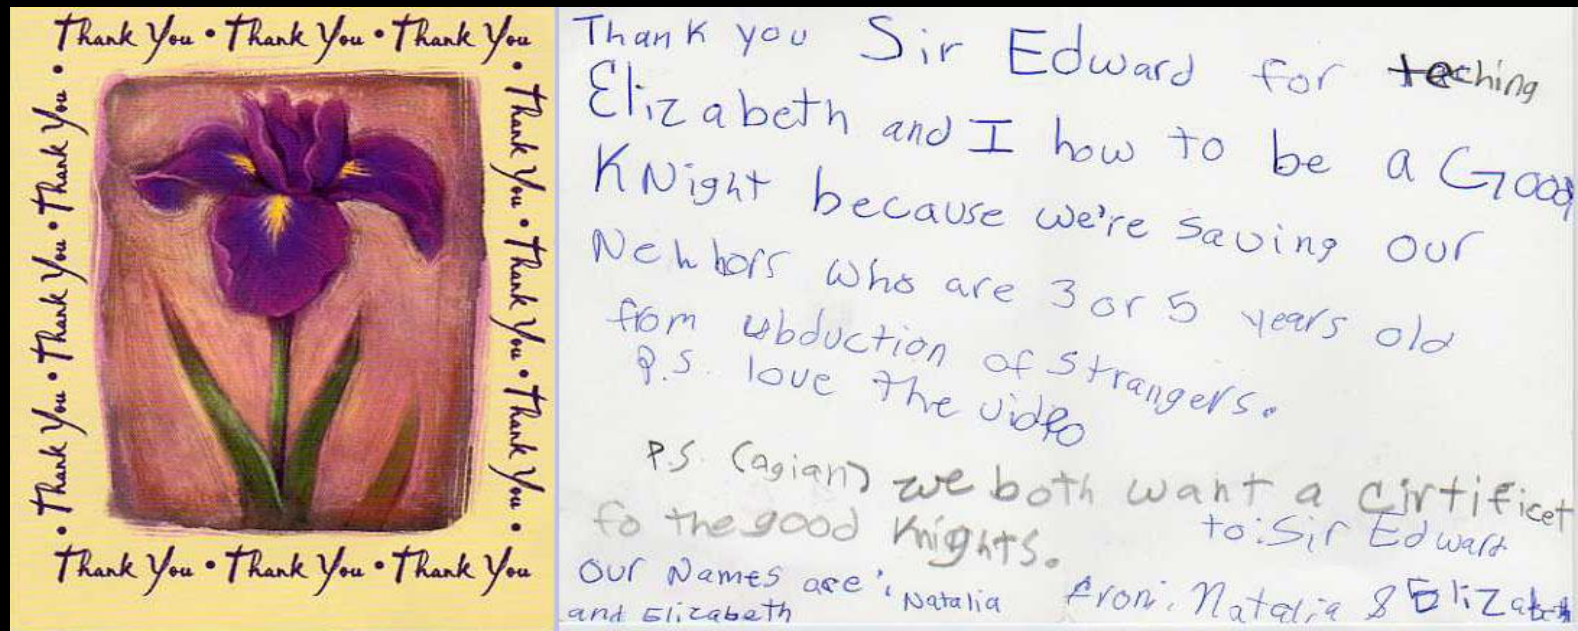 Thank You • Thank You • Thank You
• Thank You • Thank You • Thank You •
• Thank You • Thank You • Thank You •
Thank You • Thank You • Thank You
Thank you Sir Edward for teching
Elizabeth and I how to be a Good
KNight because we're saving our
Nehbors who are 3 or 5 years old
from ubduction of Strangers.
P.S. love the video
P.S. (agian) we both want a cirtificet
fo the good Knights.
to: Sir Edward
Our Names are: Natalia
and Elizabeth
from: Natalia & Elizabeth